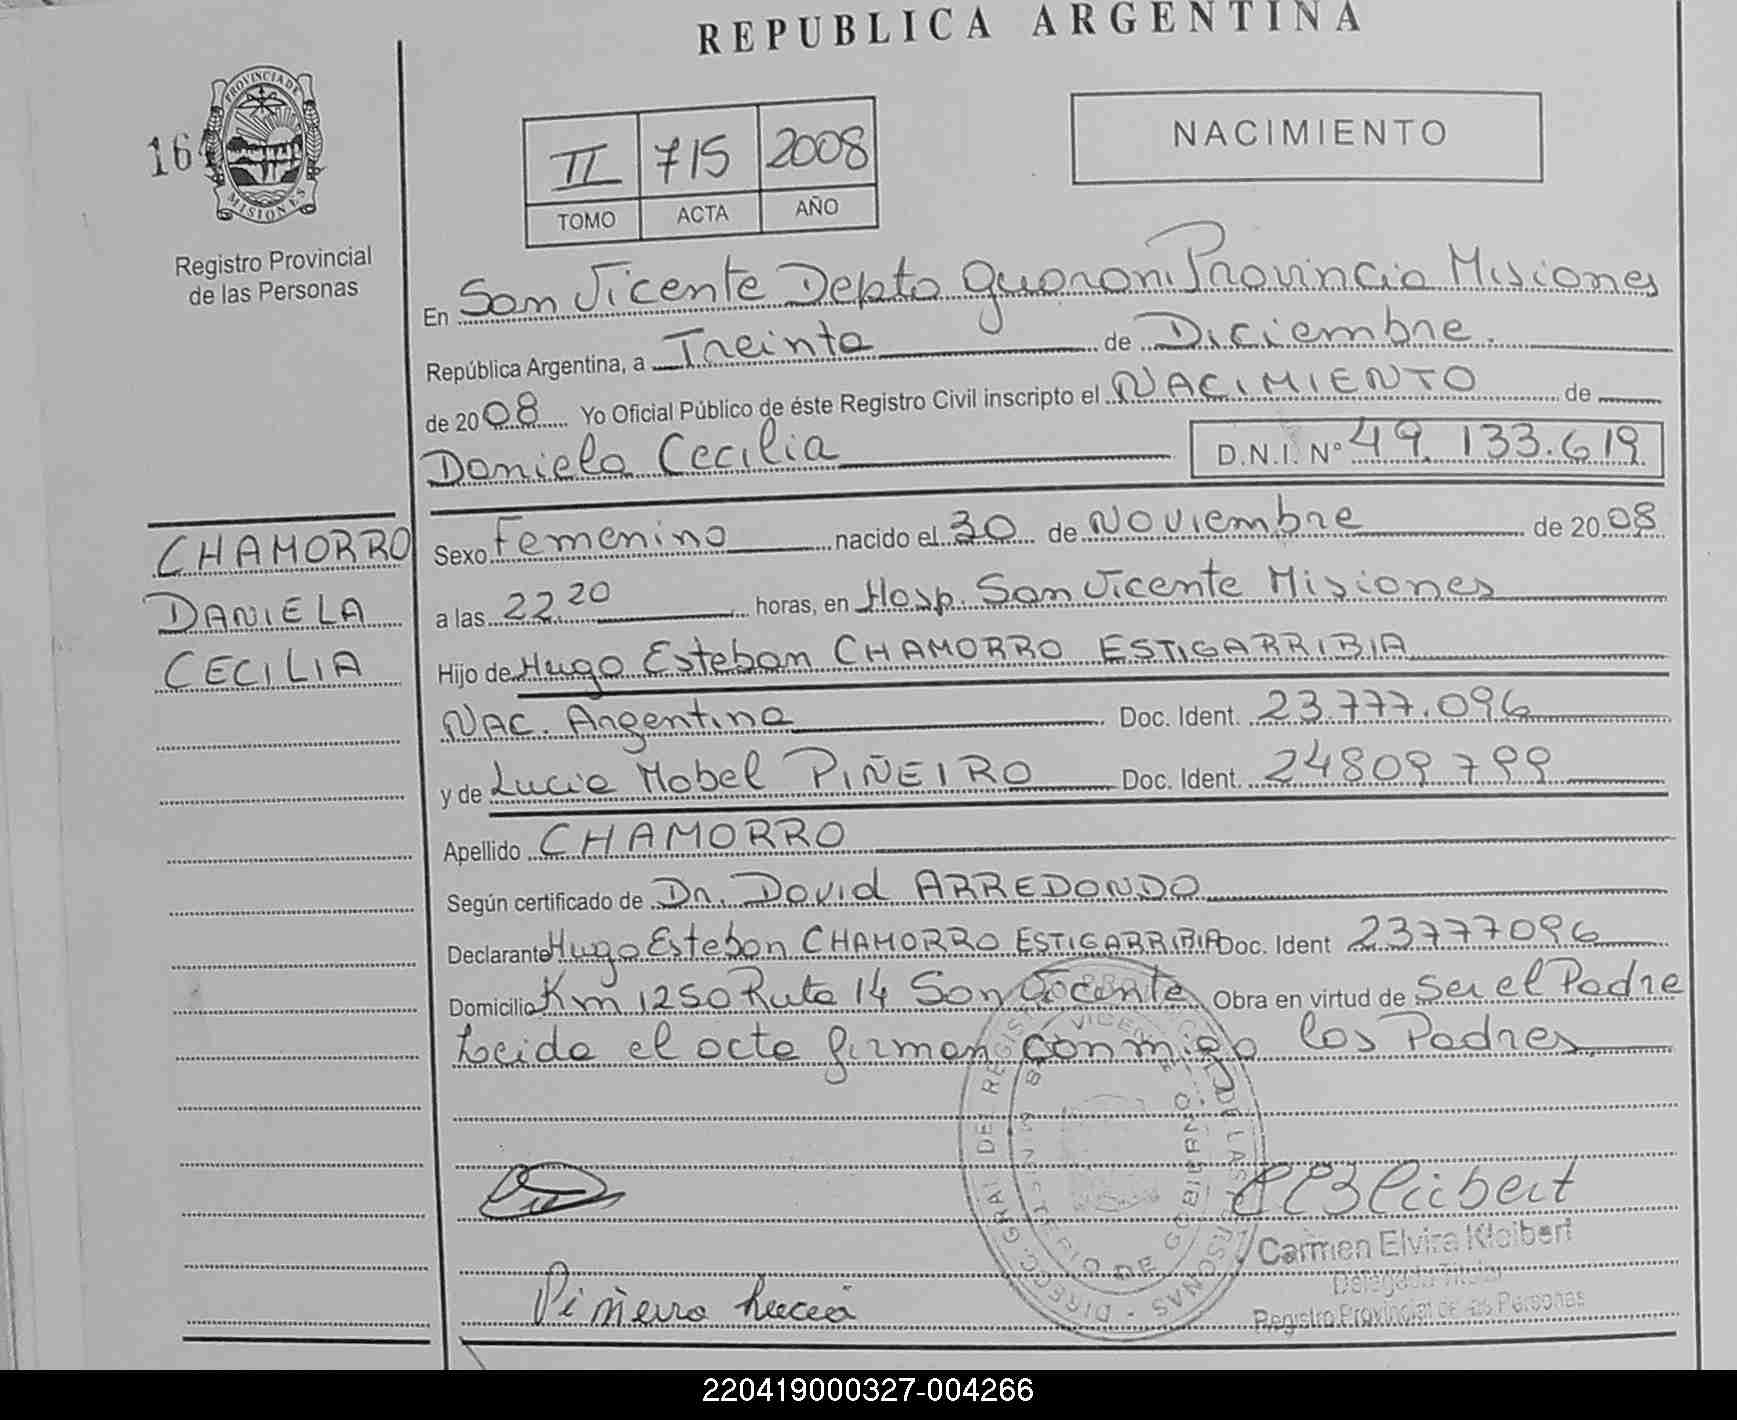 REPUBLICA ARGENTINA
PROVINCIA DE MISIONES
Registro Provincial
de las Personas
NACIMIENTO
II 715 2008
TOMO ACTA AÑO
En San Vicente Depto Guaraní Provincia Misiones
República Argentina, a Treinta de Diciembre.
de 2008 Yo Oficial Público de éste Registro Civil inscripto el NACIMIENTO de
Daniela Cecilia D.N.I. Nº 49.133.619
CHAMORRO
DANIELA
CECILIA
Sexo Femenino nacido el 30 de Noviembre de 2008
a las 22 20 horas, en Hosp. San Vicente Misiones
Hijo de Hugo Esteban CHAMORRO ESTIGARRIBIA
NAC. Argentina Doc. Ident. 23.777.096
y de Lucia Mabel PIÑEIRO Doc. Ident. 24809799
Apellido CHAMORRO
Según certificado de Dr. David ARREDONDO
Declarante Hugo Esteban CHAMORRO ESTIGARRIBIA Doc. Ident 23777096
Domicilio Km 1250 Ruta 14 San Vicente Obra en virtud de Ser el Padre
Leida el acta firman conmigo los Padres
Piñeiro Lucia
Carmen Elvira Kleibert
Delegada Titular
Registro Provincial de las Personas
220419000327-004266